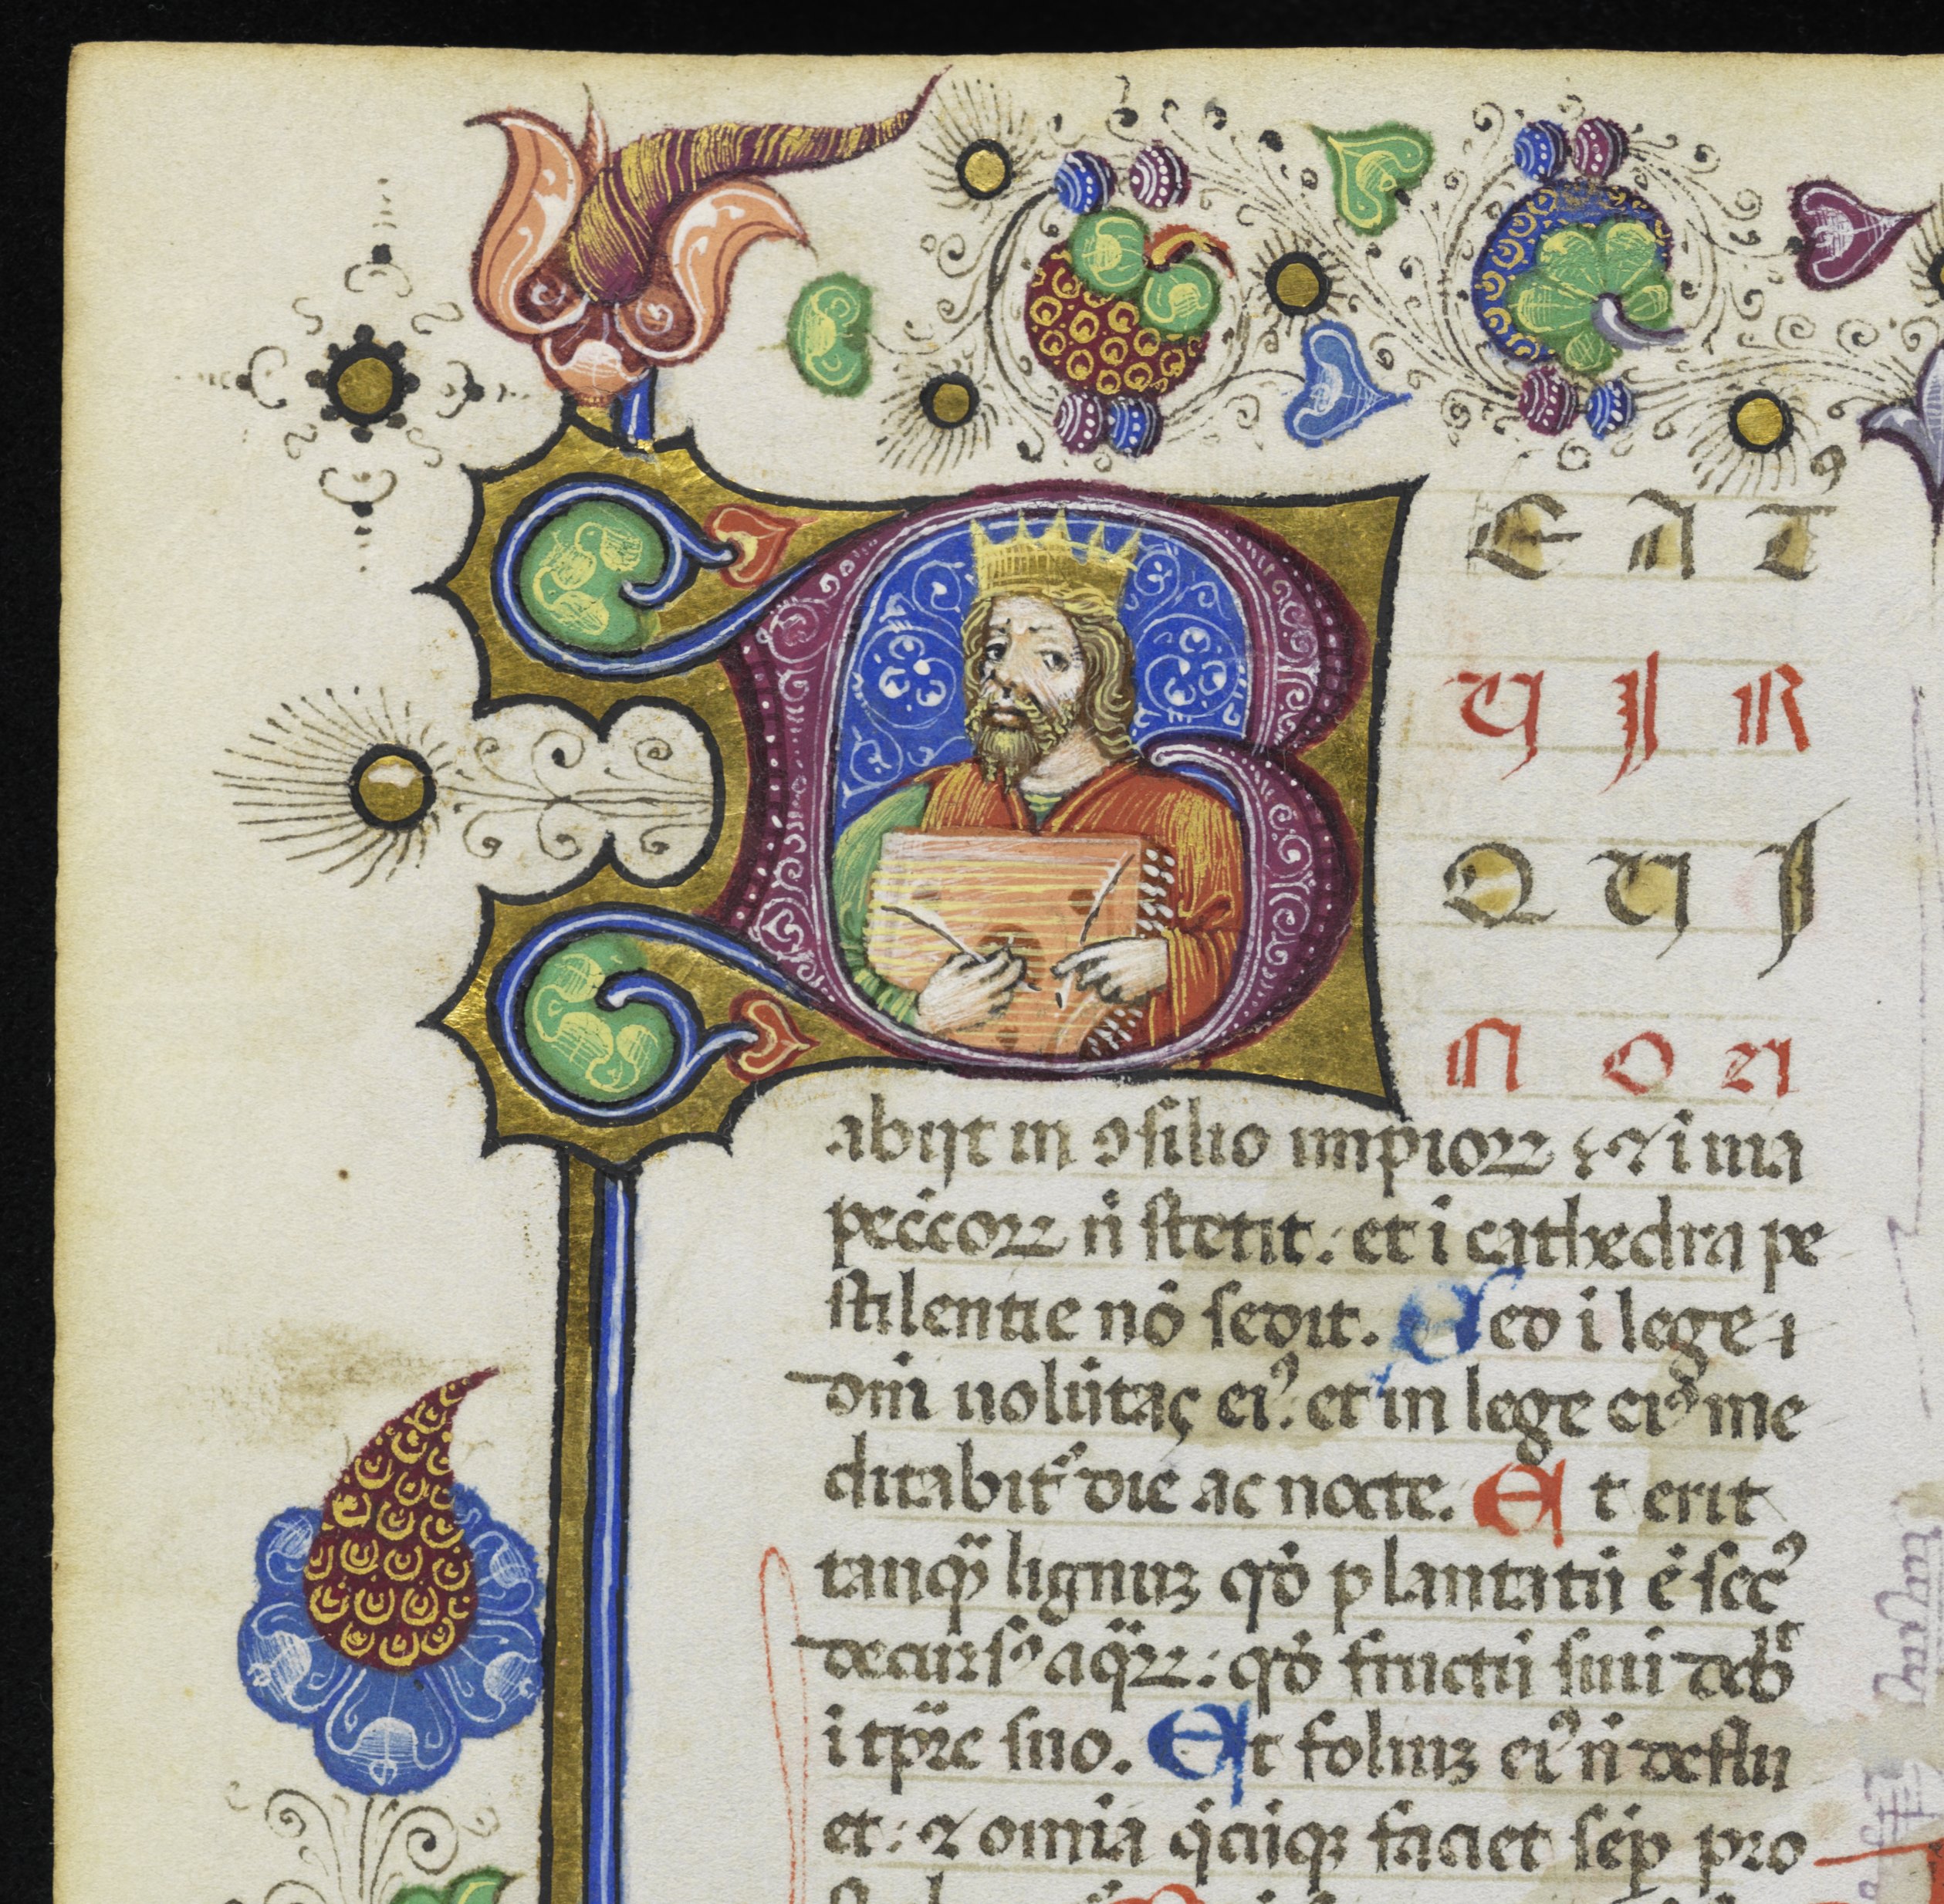 B EAT
VIR
QUI
NON
abijt in ꝯsilio impioꝝ ⁊ i uia
peccoꝝ n̄ stetit: et i cathedra pe
stilentie nō sedit. Sed i lege
dn̄i uolūtas eiꝰ: et in lege eiꝰ me
ditabit᷑ die ac nocte. Et erit
tanqᷓ lignuꝫ qd̓ plantatū ē sec̓
decursꝰ aqᷓꝝ: qd̓ fructū suū dab̓t
i tp̄re suo. Et foliuꝫ eiꝰ n̄ deflu
et: ⁊ om̄ia q̄cūqꝫ faciet sēp pro